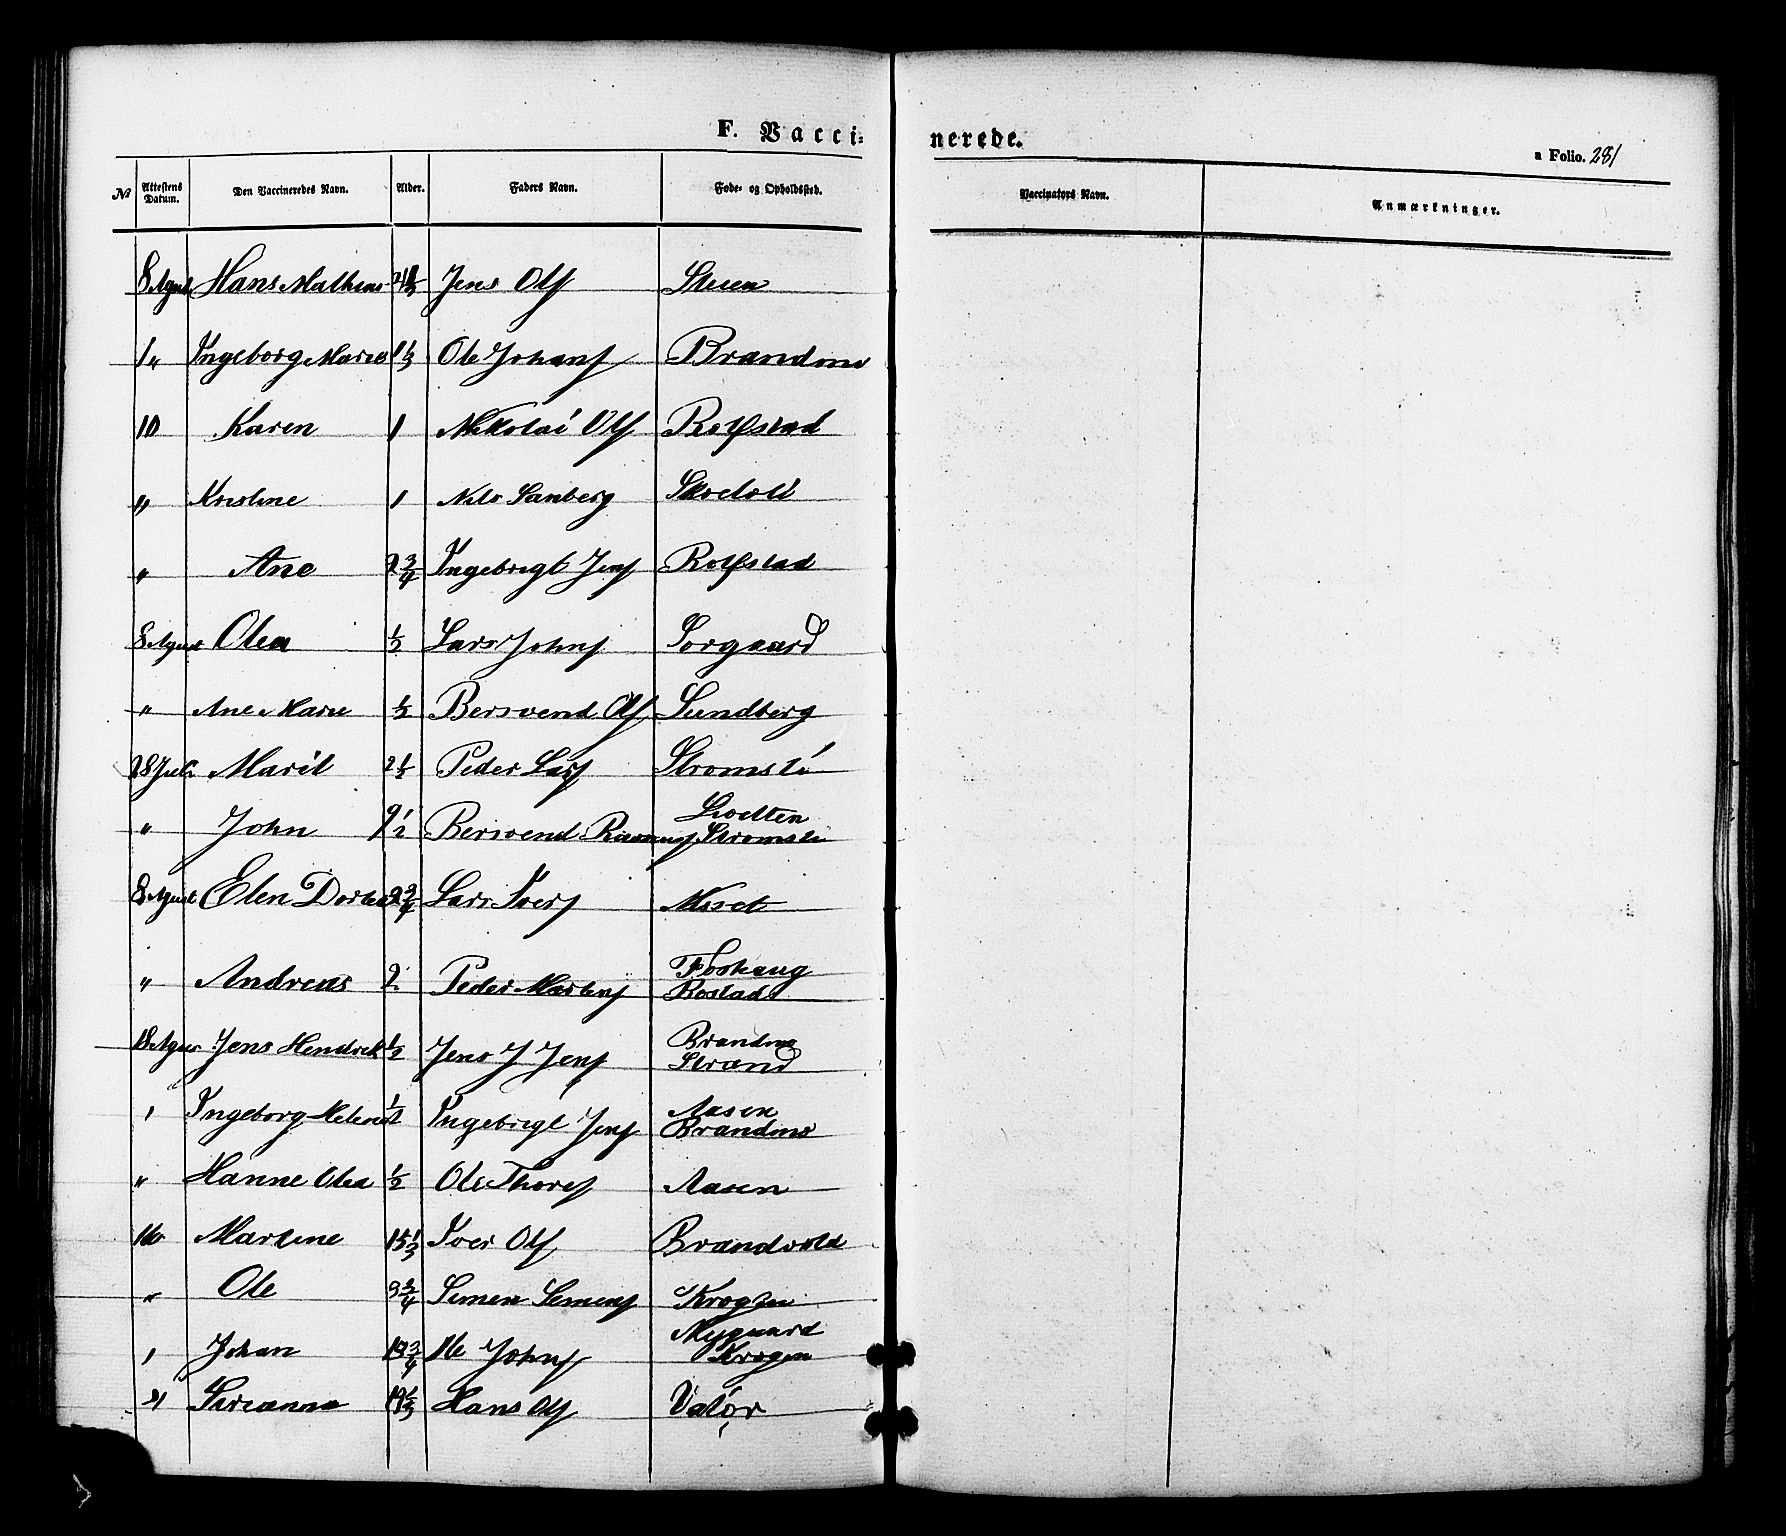 F. Vacci=
nerede.
a Folio. 281
№ Attestens Datum. Den Vaccineredes Navn. Alder. Faders Navn. Føde= og Opholdssted. Vaccinators Navn. Anmærkninger.
8 Agust Hans Mathias Jens Ols Steen
1 " Ingeborg Marie 1½ Ole Johans Brandmo
10 Karen 1 Nikolai Ols Rotsstad
" Kristine 1 Nils Sanberg
" Ane 2¾ Ingebrigt Jens Rotsstad
8 Agust Olea ½ Lars Johns Sorgaard
" Ane Marie ½ Bersvend Ols Sundberg
28 Juli Marit 2½ Peder Lars Stromsli
" John 9½ Bersvend Rasmus
Stromsli
8 Agust Elen Dortea 2¾ Lars Ivers Moset
" Andreas 2 Peder Martens
Rostad
18 Agus Jens Hendrik ½ Jens J Jens Brandmo
Strand
" Ingeborg ½ Ingebrigt Jens Aasen
Brandmo
" Hanne Olea ½ Ole Thores Aasen
16 Martine 15⅓ Iver Ols Brandvold
" Ole Simen Simens Krogen
" Johan 19¾ Ole Johns Nygaard
Krogen
21 Sirianna Hans Ols Valør